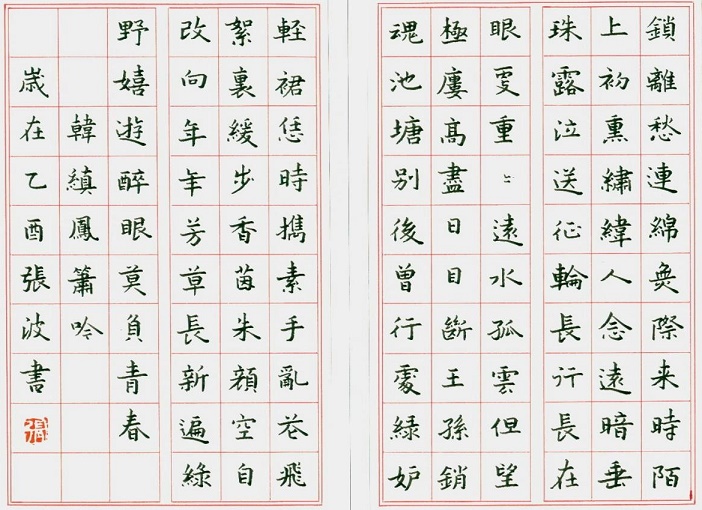 鎖離愁連綿無際来時陌
上初熏繡緯人念遠暗垂
珠露泣送征輪長行長在
眼更重〻遠水孤雲但望
極廔高盡日目斷王孫銷
魂池塘別後曾行處綠妒
軽裙恁時攜素手亂花飛
絮裏緩步香茵朱顏空自
改向年年芳草長新遍綠
野嬉遊醉眼莫負青春
韓縝鳳簫吟
歲在乙酉張波書